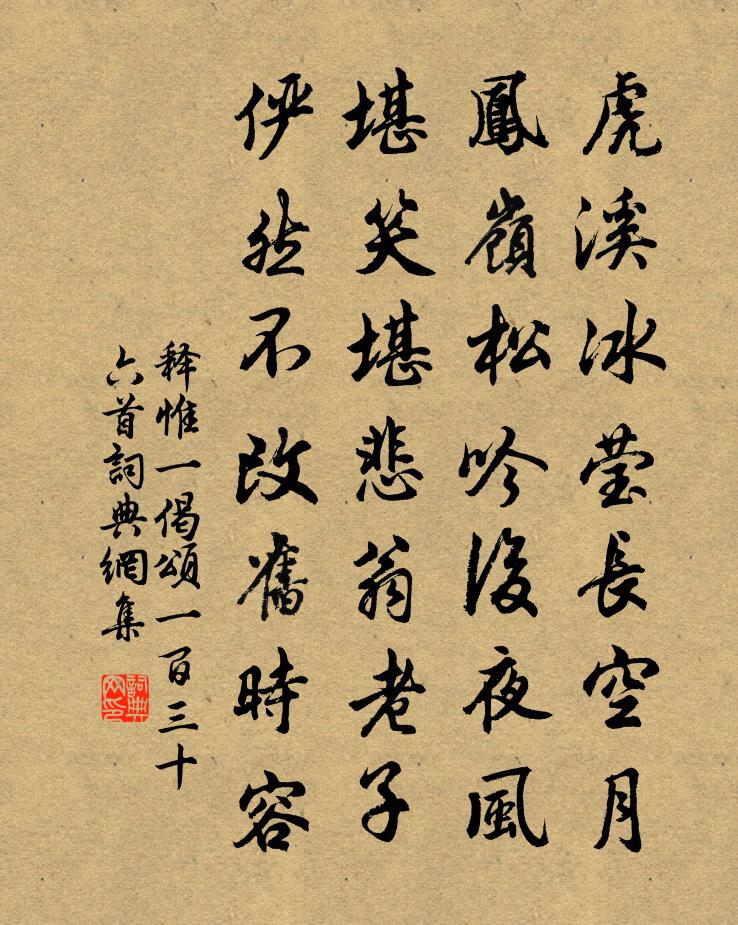 虎溪冰莹長空月
鳳嶺松吟後夜風
堪笑堪悲翁老子
俨然不改舊時容
释惟一偈頌一百三十
六首詞典網集
詞典网印